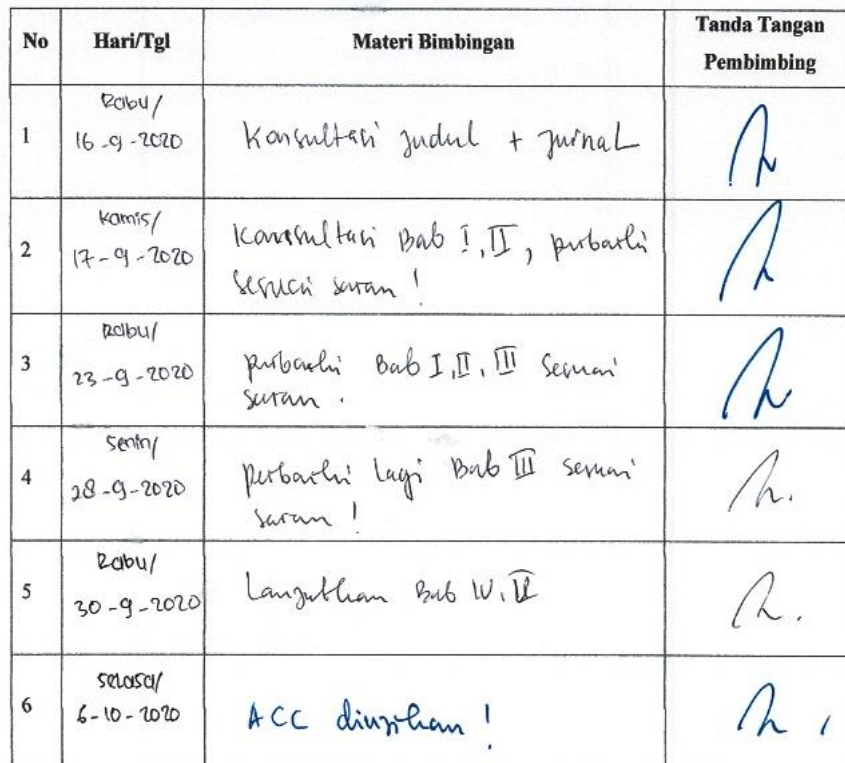 No Hari/Tgl Materi Bimbingan Tanda Tangan
Pembimbing
1 Rabu/
16-9-2020 Konsultasi judul + jurnal
2 Kamis/
17-9-2020 Konsultasi Bab I, II, perbaiki
sesuai saran !
3 Rabu/
23-9-2020 perbaiki Bab I, II, III sesuai
saran .
4 Senin/
28-9-2020 perbaiki lagi Bab III sesuai
saran !
5 Rabu/
30-9-2020 Lanjutkan Bab IV, V
6 Selasa/
6-10-2020 ACC diujikan !